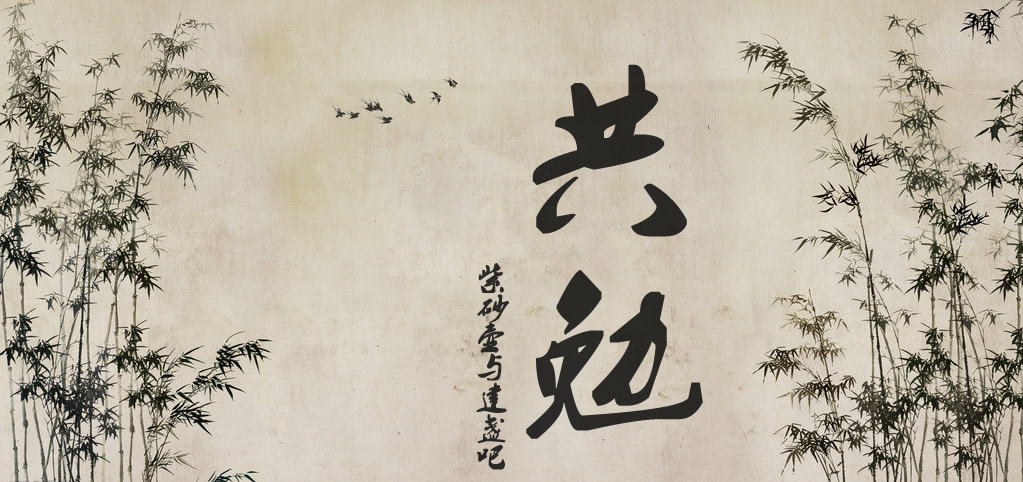 共勉
紫砂壶与建盏吧